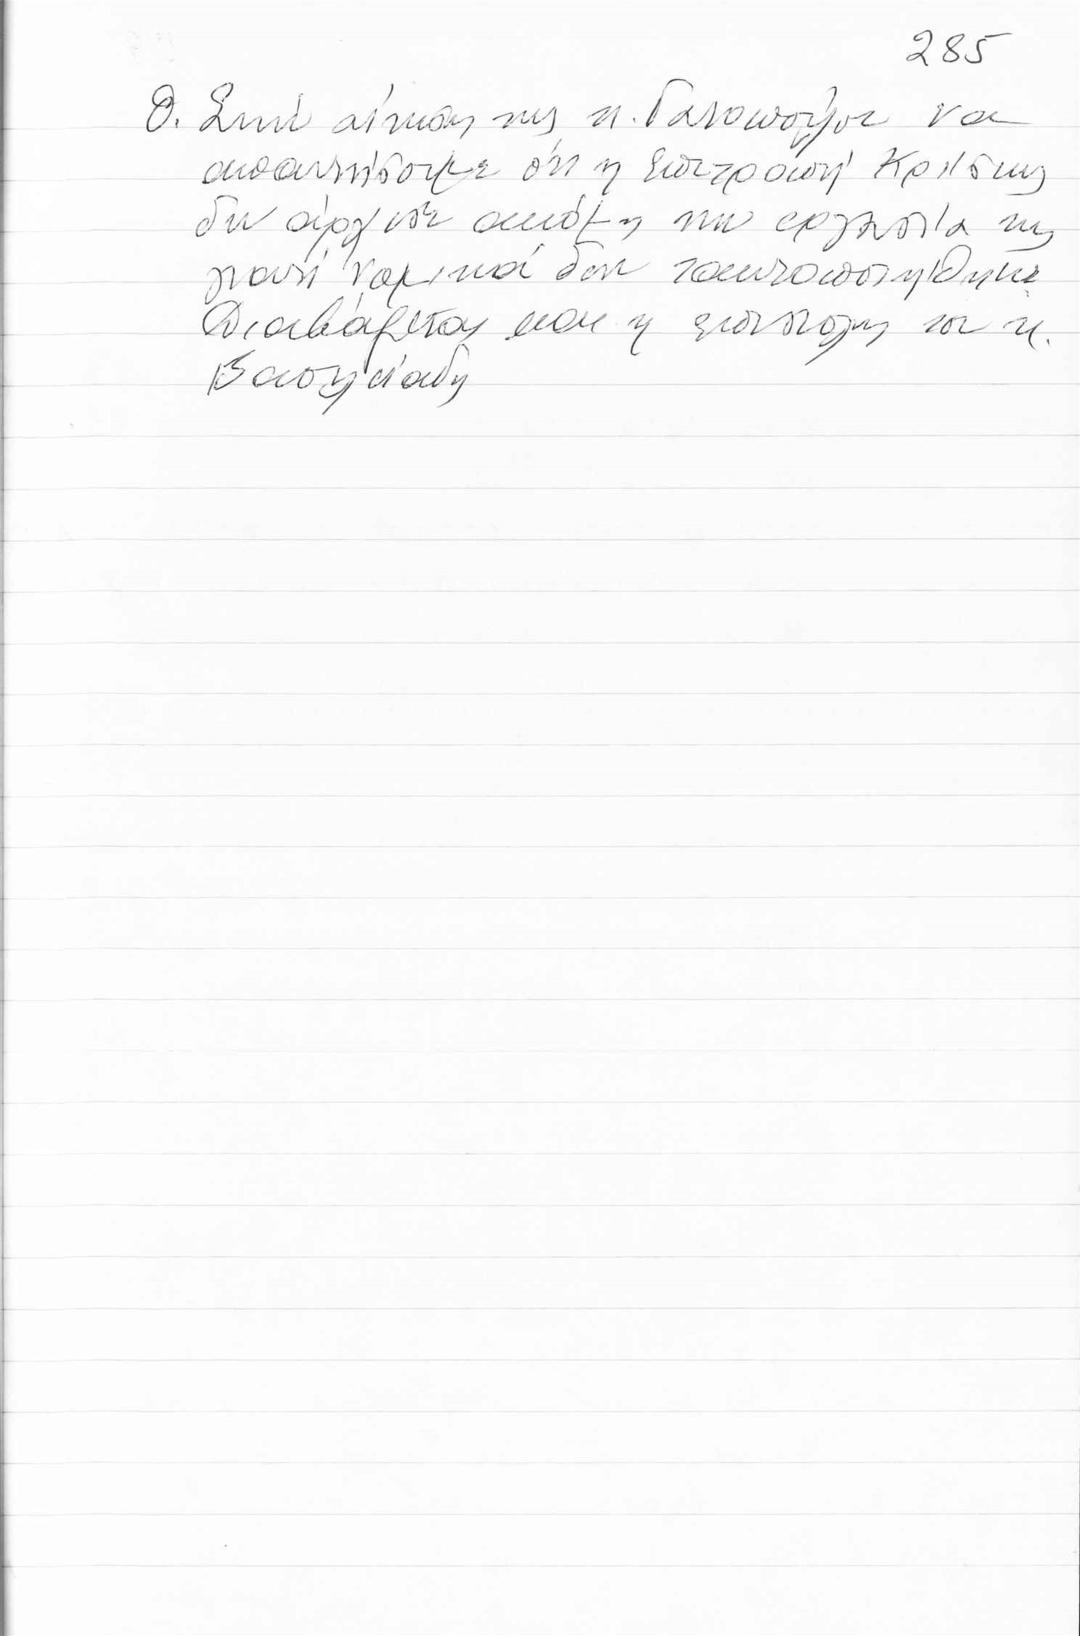 285
Θ. Στην αίτηση της κ. να
απαντήσουμε ότι η Επιτροπή Κρίσης
δεν άρχισε ακόμη την εργασία της
γιατί νομικά δεν τακτοποιήθηκε.
Διαβάζεται και η επιστολή του κ.
Βασιλειάδη